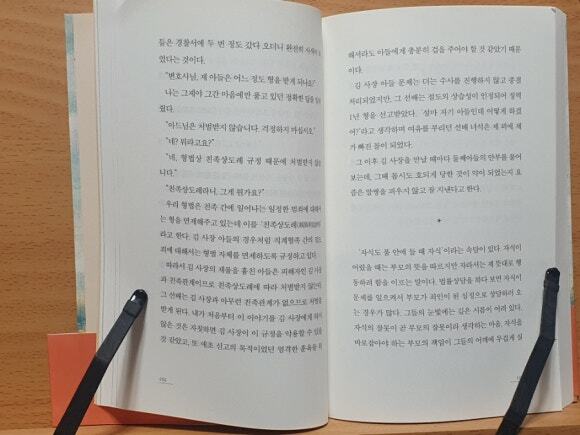 들은 경찰서에 두 번 정도 갔다 오더니 완전히
었다는 것이다.
"변호사님, 제 아들은 어느 정도 형을 받게 되나요?"
나는 그제야 그간 마음에만 품고 있던 정확한 답을
"아드님은 처벌받지 않습니다. 걱정하지 마십시오."
"네? 뭐라고요?"
"네, 형법상 친족상도례 규정 때문에 처벌받지
니다."
"친족상도례라니, 그게 뭔가요?"
우리 형법은 친족 간에 일어나는 일정한 범죄에 대해서
는 형을 면제해주고 있는데 이를 '친족상도례
라고 한다. 김 사장 아들의 경우처럼 직계혈족 간의
죄에 대해서는 형벌 자체를 면제하도록 규정하고
따라서 김 사장의 재물을 훔친 아들은 피해자인 김 사장
과 친족관계이므로 친족상도례에 따라 처벌받지 않는
그 선배는 김 사장과 아무런 친족관계가 없으므로 처벌을
받게 된다. 내가 처음부터 이 이야기를 김 사장에게 하지
않은 것은 자칫하면 김 사장이 이 규정을 악용할 수 있을
것 같았고, 또 애초 신고의 목적이었던 엄격한 훈육을
해서라도 아들에게 충분히 겁을 주어야 할 것 같았기 때문
이다.
김 사장 아들 문제는 더는 수사를 진행하지 않고 종결
처리되었지만, 그 선배는 절도의 상습성이 인정되어 징역
1년 형을 선고받았다. '설마 자기 아들인데 어떻게 하겠
어?'라고 생각하며 여유를 부리던 선배 녀석은 제 꾀에 제
가 빠진 꼴이 되었다.
그 이후 김 사장을 만날 때마다 둘째아들의 안부를 물어
보는데, 그때 몹시도 호되게 당한 것이 약이 되었는지 요
즘은 말썽을 피우지 않고 잘 지낸다고 한다.
'자식도 품 안에 들 때 자식'이라는 속담이 있다. 자식이
어렸을 때는 부모의 뜻을 따르지만 자라서는 제 뜻대로 행
동하려 함을 이르는 말이다. 법률상담을 하다 보면 자식이
문제를 일으켜서 부모가 죄인이 된 심정으로 상담하러 오
는 경우가 많다. 그들의 눈빛에는 깊은 시름이 어려 있다.
자식의 잘못이 곧 부모의 잘못이라 생각하는 마음, 자식을
바로잡아야 하는 부모의 책임이 그들의 어깨에 무겁게